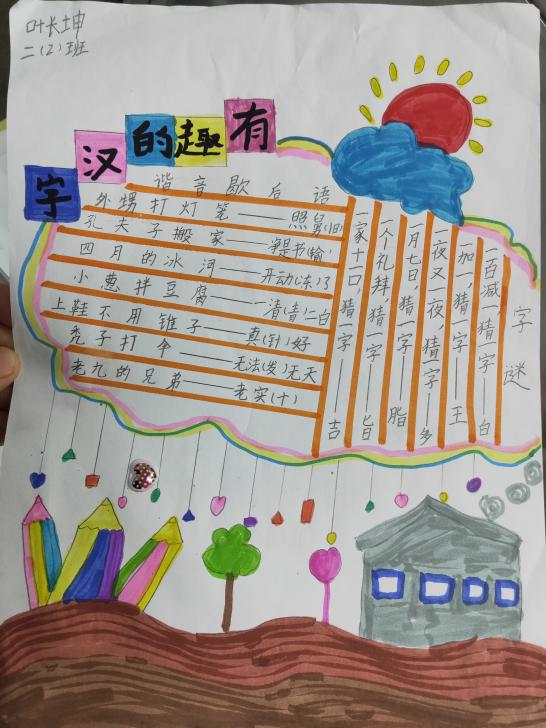 叶长坤
二(2)班
有趣的汉字
谐音歇后语
外甥打灯笼——照舅(旧)
孔夫子搬家——净是书(输)
四月的冰河——开动(冻)了
小葱拌豆腐——一清(青)二白
上鞋不用锥子——真(针)好
秃子打伞——无法(发)无天
老九的兄弟——老实(十)
字谜
一百减一,猜一字——白
一加一,猜一字——王
一夜又一夜,猜一字——多
一月七日,猜一字——脂
一个礼拜,猜一字——旨
一家十一口,猜一字——吉